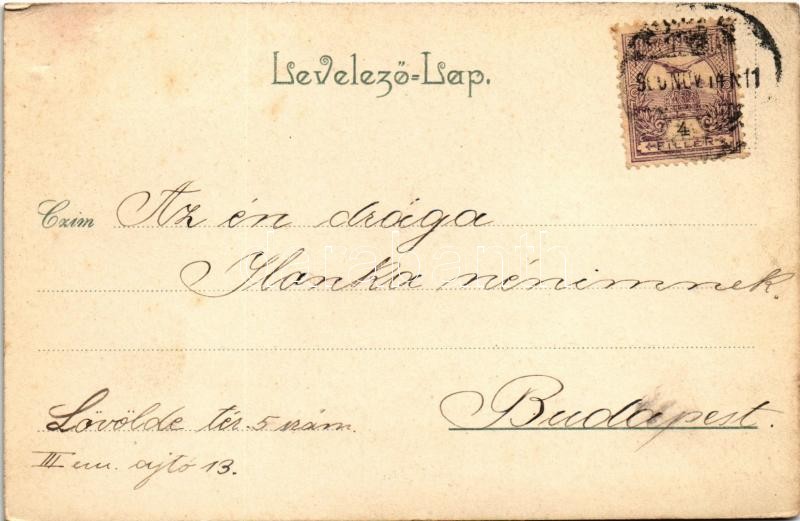 Levelező=Lap.
NOV 14
4
FILLÉR
Czim Az én drága
Ilonka nénimnek.
Budapest.
Lövölde tér. 5 szám.
III em. ajtó 13.